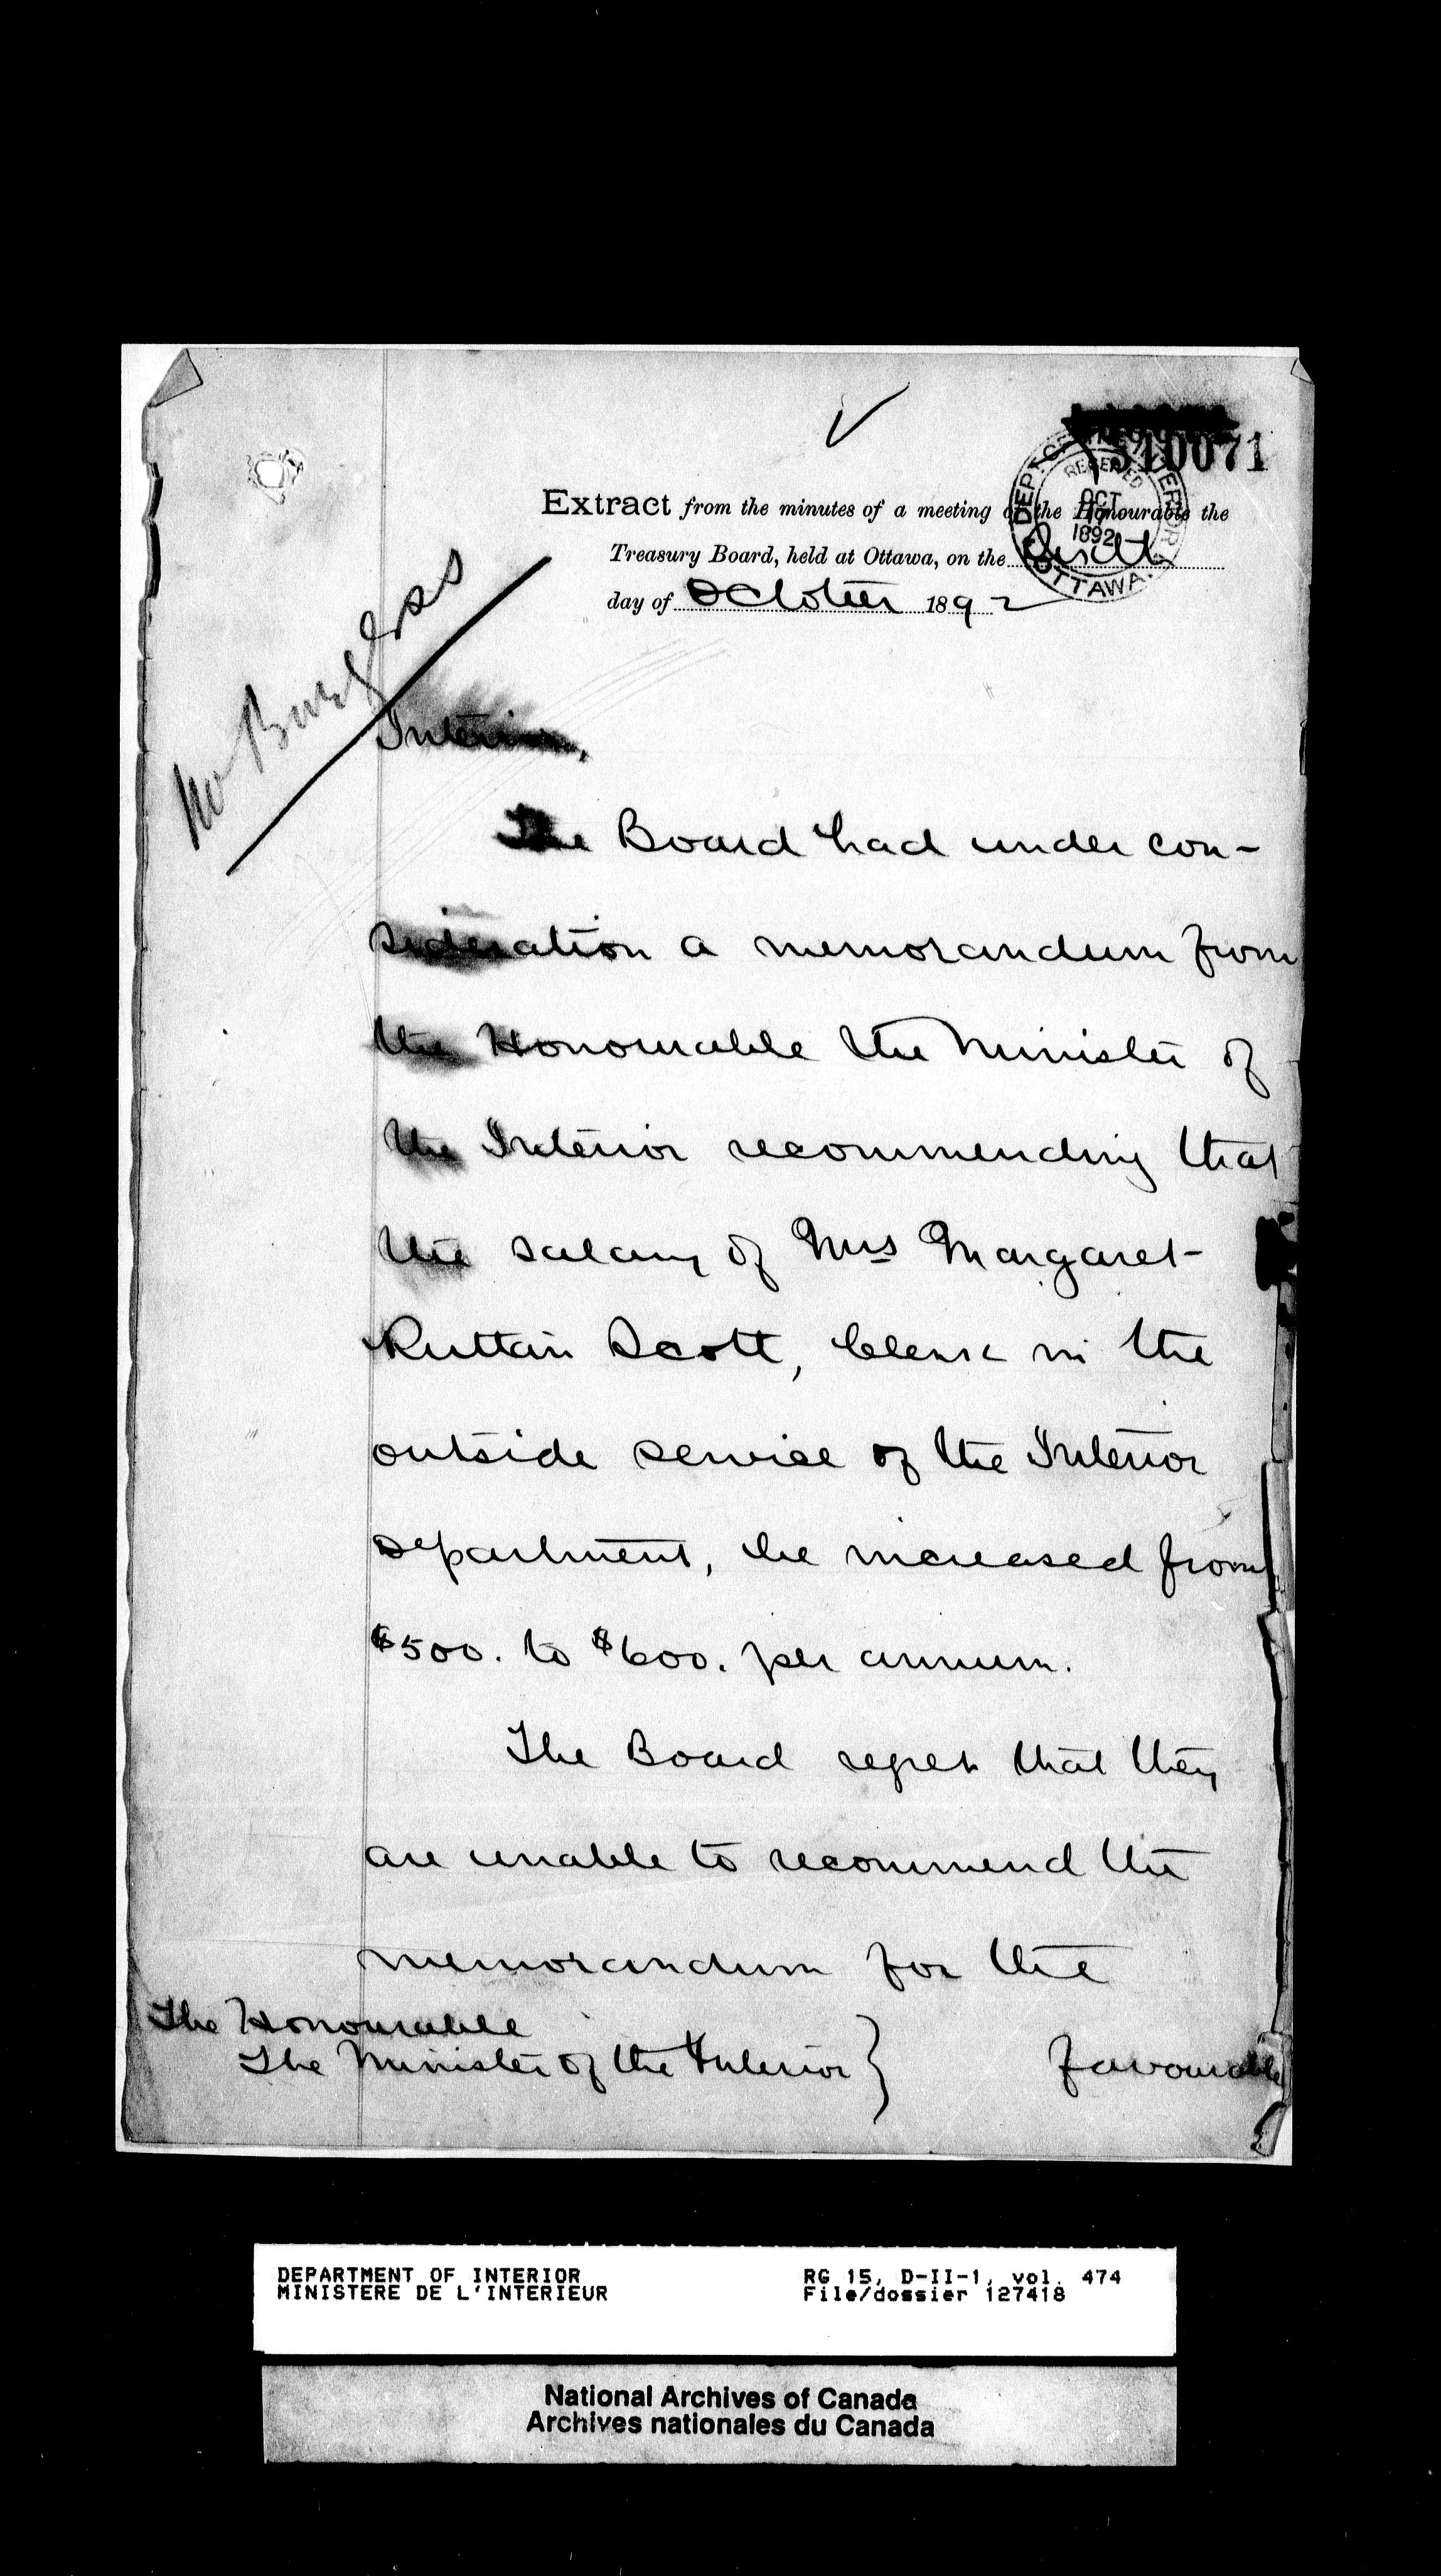 310071
DEPT. OF THE INTERIOR
RECEIVED
OCT
17
1892
OTTAWA.
Extract from the minutes of a meeting of the Honourable the
Treasury Board, held at Ottawa, on the
day of October 1892
Mr Burgess
Interior,
The Board had under con-
sideration a memorandum from
the Honourable the Minister of
the Interior recommending that
the salary of Mrs Margaret
Ruttan Scott, Clerk in the
outside service of the Interior
Department, be increased from
$500. to $600. per annum.
The Board regret that they
are unable to recommend the
memorandum for the
The Honourable
The Minister of the Interior }
favourable
DEPARTMENT OF INTERIOR RG 15, D-II-1, vol. 474
MINISTERE DE L'INTERIEUR File/dossier 127418
National Archives of Canada
Archives nationales du Canada